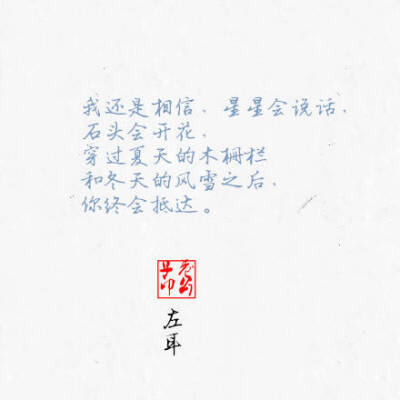 我还是相信，星星会说话，
石头会开花，
穿过夏天的木栅栏
和冬天的风雪之后，
你终会抵达。
左耳